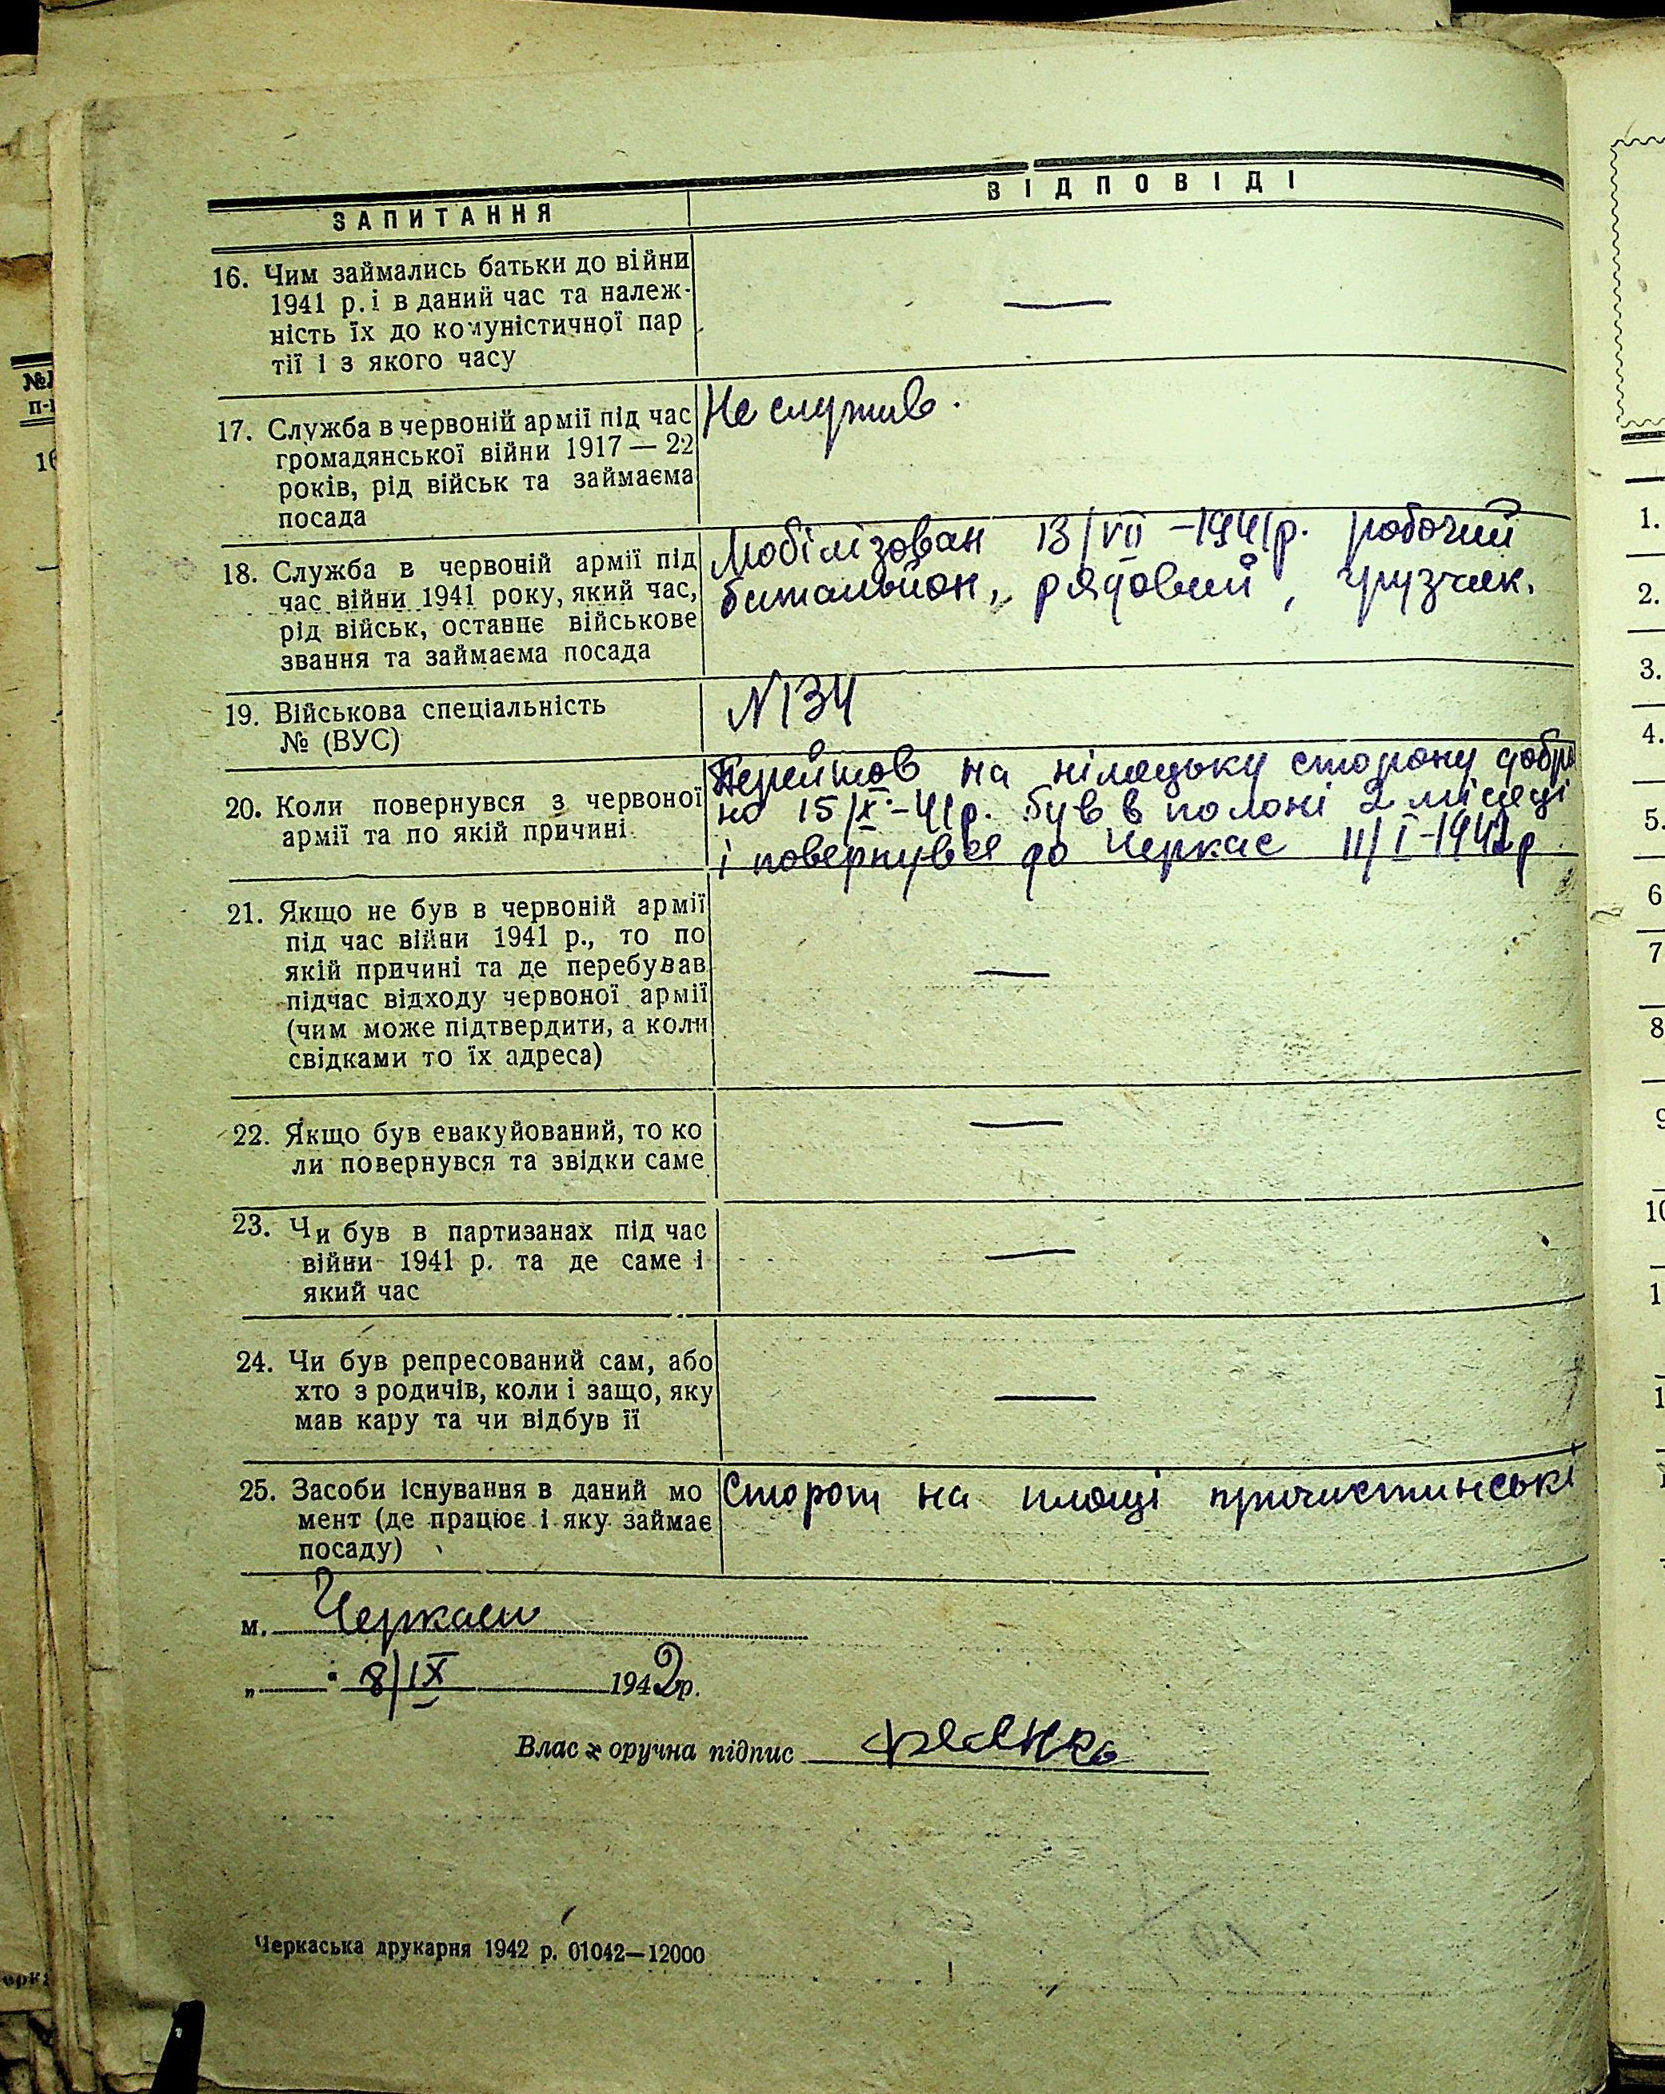 ЗАПИТАННЯ
ВІДПОВІДІ
16. Чим займались батьки до війни
1941 р. і в даний час та належ-
ність їх до комуністичної пар
тії і з якого часу
—
17. Служба в червоній армії під час
громадянської війни 1917 — 22
років, рід військ та займаєма
посада
Не служив.
18. Служба в червоній армії під
час війни 1941 року, який час,
рід військ, останнє військове
звання та займаєма посада
Мобілізован 13/VII - 1941р. робочий
батальйон, рядовий, грузчик.
19. Військова спеціальність
№ (ВУС)
N134
20. Коли повернувся з червоної
армії та по якій причині
Перейшов на німецьку сторону добро
но 15/X-41р. був в полоні 2 місяці
і повернувся до Черкас 11/I-1942р
21. Якщо не був в червоній армії
під час війни 1941 р., то по
якій причині та де перебував
підчас відходу червоної армії
(чим може підтвердити, а коли
свідками то їх адреса)
—
22. Якщо був евакуйований, то ко
ли повернувся та звідки саме
—
23. Чи був в партизанах під час
війни 1941 р. та де саме і
який час
—
24. Чи був репресований сам, або
хто з родичів, коли і защо, яку
мав кару та чи відбув її
—
25. Засоби існування в даний мо
мент (де працює і яку займає
посаду)
Сторош на площі пречистинські
м. Черкаси
„ “ 8/IX 1942р.
Влас оручна підпис
Черкаська друкарня 1942 р. 01042—12000
№№
п-п
16
1.
2.
3.
4.
5.
6
7
8
9
10
1
1